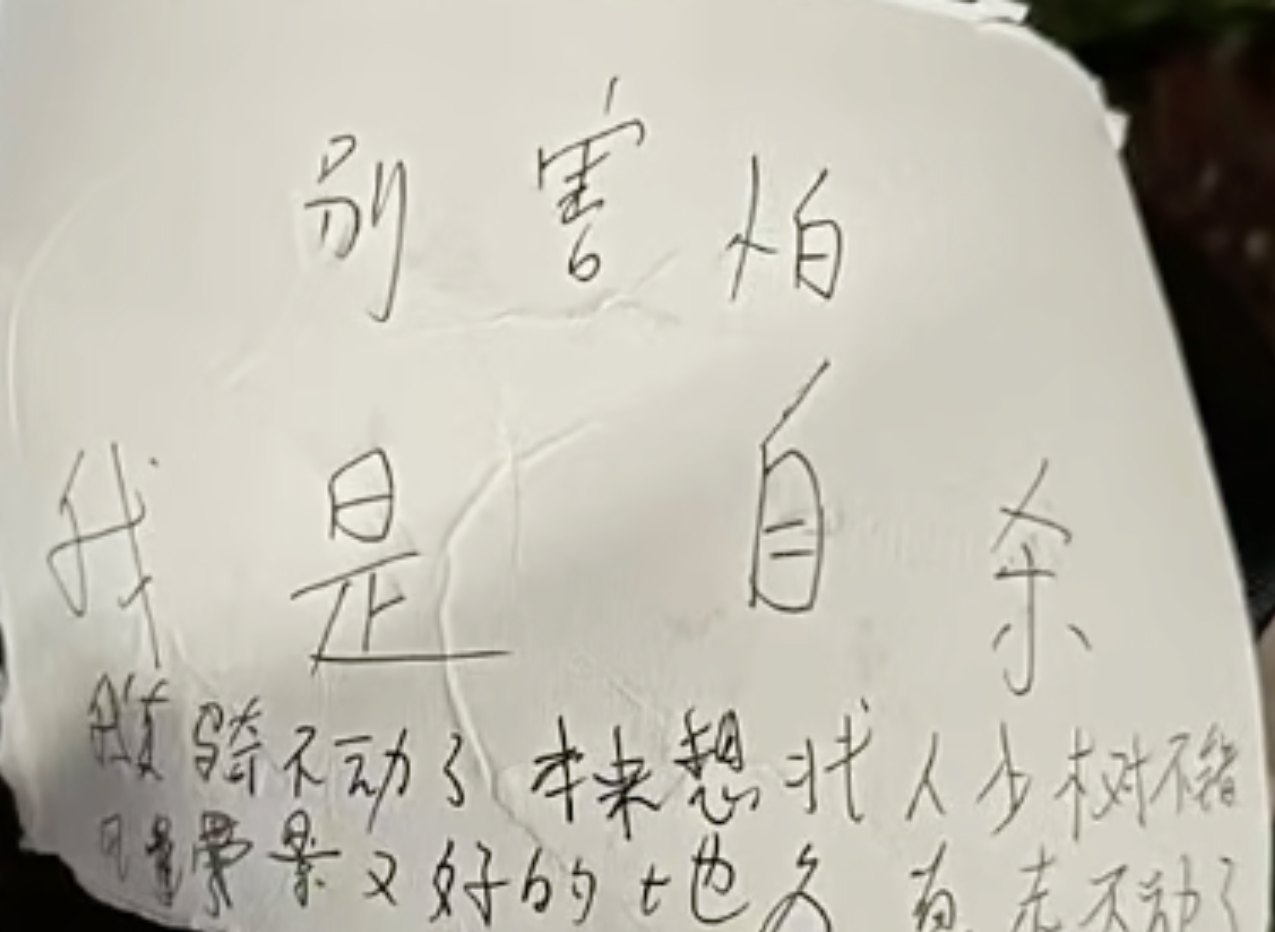 别害怕
我是自杀
骑不动了 本来想找人少树不错
景又好的地 真走不动了